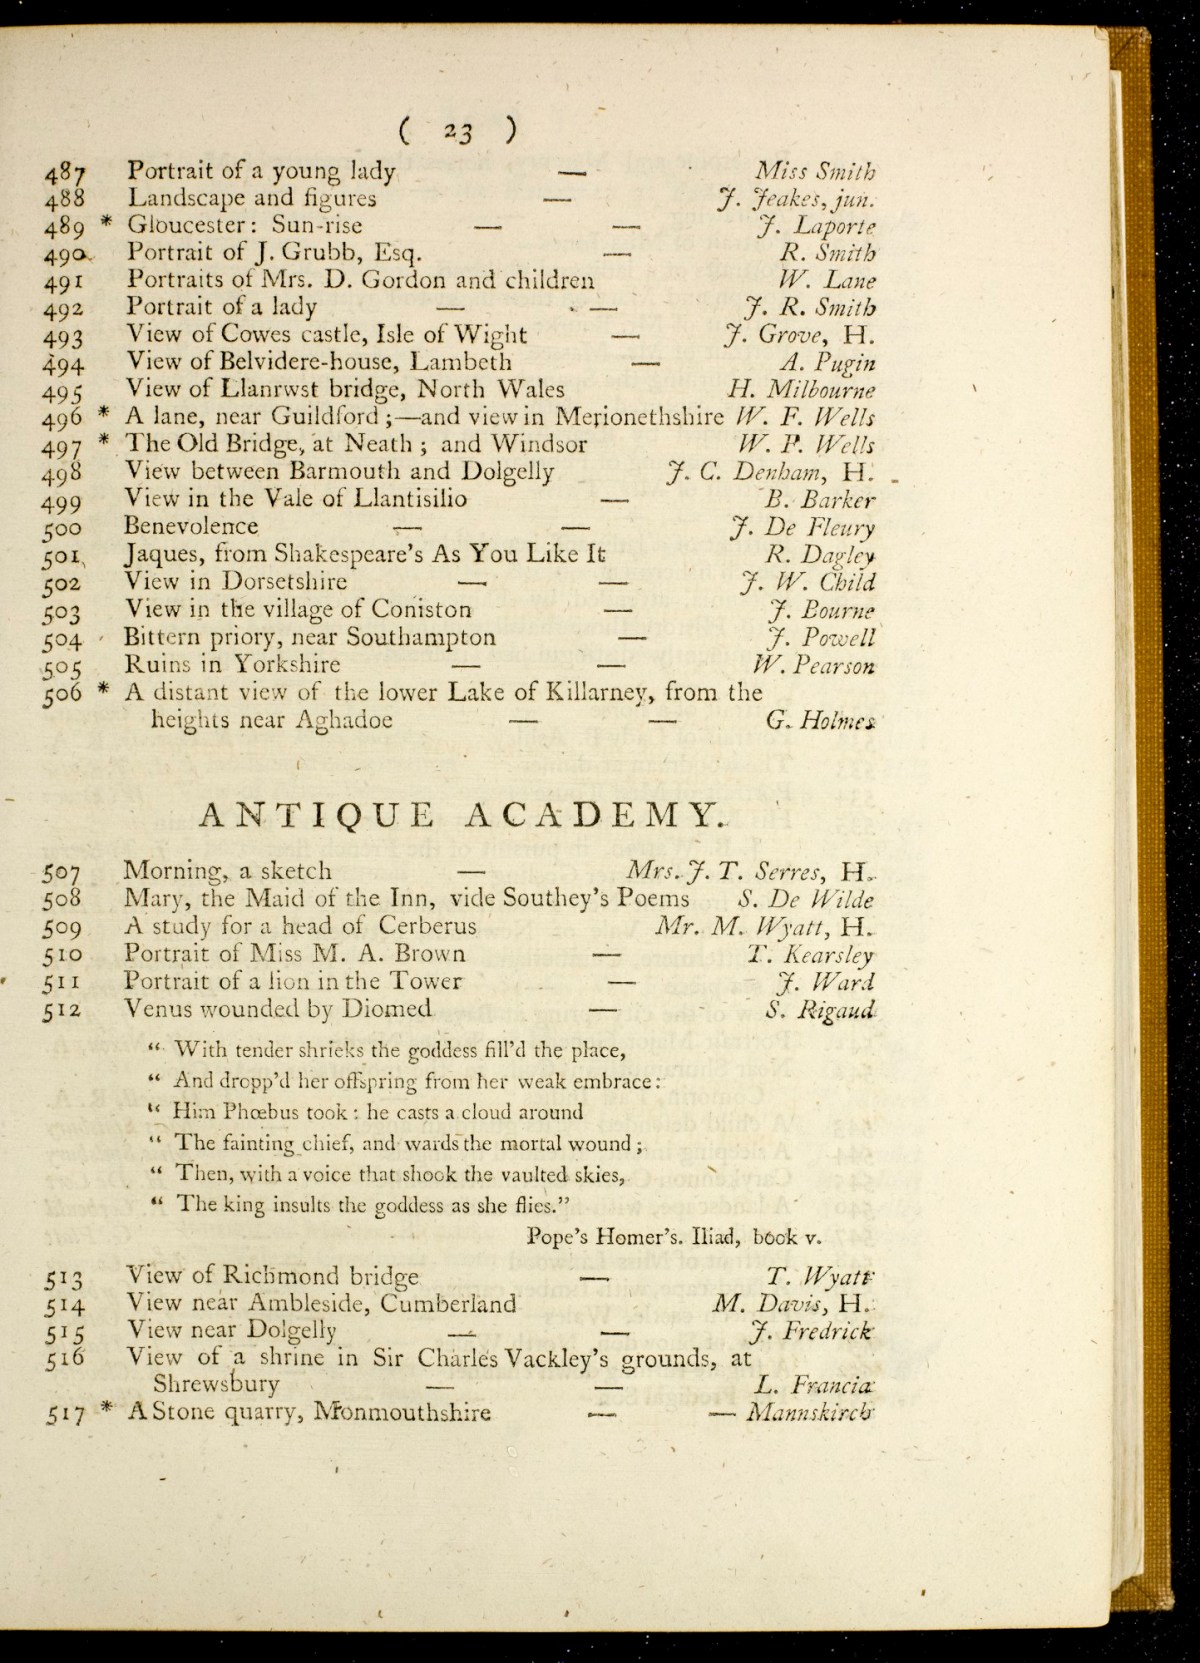 ( 23 )
487 Portrait of a young lady — Miss Smith
488 Landscape and figures — J. Jeakes, jun.
489 * Gloucester: Sun-rise — — J. Laporte
490 Portrait of J. Grubb, Esq. — R. Smith
491 Portraits of Mrs. D. Gordon and children W. Lane
492 Portrait of a lady — — J. R. Smith
493 View of Cowes castle, Isle of Wight — J. Grove, H.
494 View of Belvidere-house, Lambeth — A. Pugin
495 View of Llanrwst bridge, North Wales H. Milbourne
496 * A lane, near Guildford ;—and view in Merionethshire W. F. Wells
497 * The Old Bridge, at Neath ; and Windsor W. F. Wells
498 View between Barmouth and Dolgelly J. C. Denham, H.
499 View in the Vale of Llantisilio — B. Barker
500 Benevolence — — J. De Fleury
501 Jaques, from Shakespeare's As You Like It R. Dagley
502 View in Dorsetshire — — J. W. Child
503 View in the village of Coniston — J. Bourne
504 Bittern priory, near Southampton — J. Powell
505 Ruins in Yorkshire — — W. Pearson
506 * A distant view of the lower Lake of Killarney, from the
heights near Aghadoe — — G. Holmes
ANTIQUE ACADEMY.
507 Morning, a sketch — Mrs. J. T. Serres, H.
508 Mary, the Maid of the Inn, vide Southey's Poems S. De Wilde
509 A study for a head of Cerberus Mr. M. Wyatt, H.
510 Portrait of Miss M. A. Brown — T. Kearsley
511 Portrait of a lion in the Tower — J. Ward
512 Venus wounded by Diomed — S. Rigaud
“ With tender shrieks the goddess fill'd the place,
“ And dropp'd her offspring from her weak embrace:
“ Him Phœbus took : he casts a cloud around
“ The fainting chief, and wards the mortal wound ;
“ Then, with a voice that shook the vaulted skies,
“ The king insults the goddess as she flies.”
Pope's Homer's. Iliad, book v.
513 View of Richmond bridge — T. Wyatt
514 View near Ambleside, Cumberland M. Davis, H.
515 View near Dolgelly — — J. Fredrick
516 View of a shrine in Sir Charles Vackley's grounds, at
Shrewsbury — — L. Francia
517 * A Stone quarry, Monmouthshire — — Mannskirch